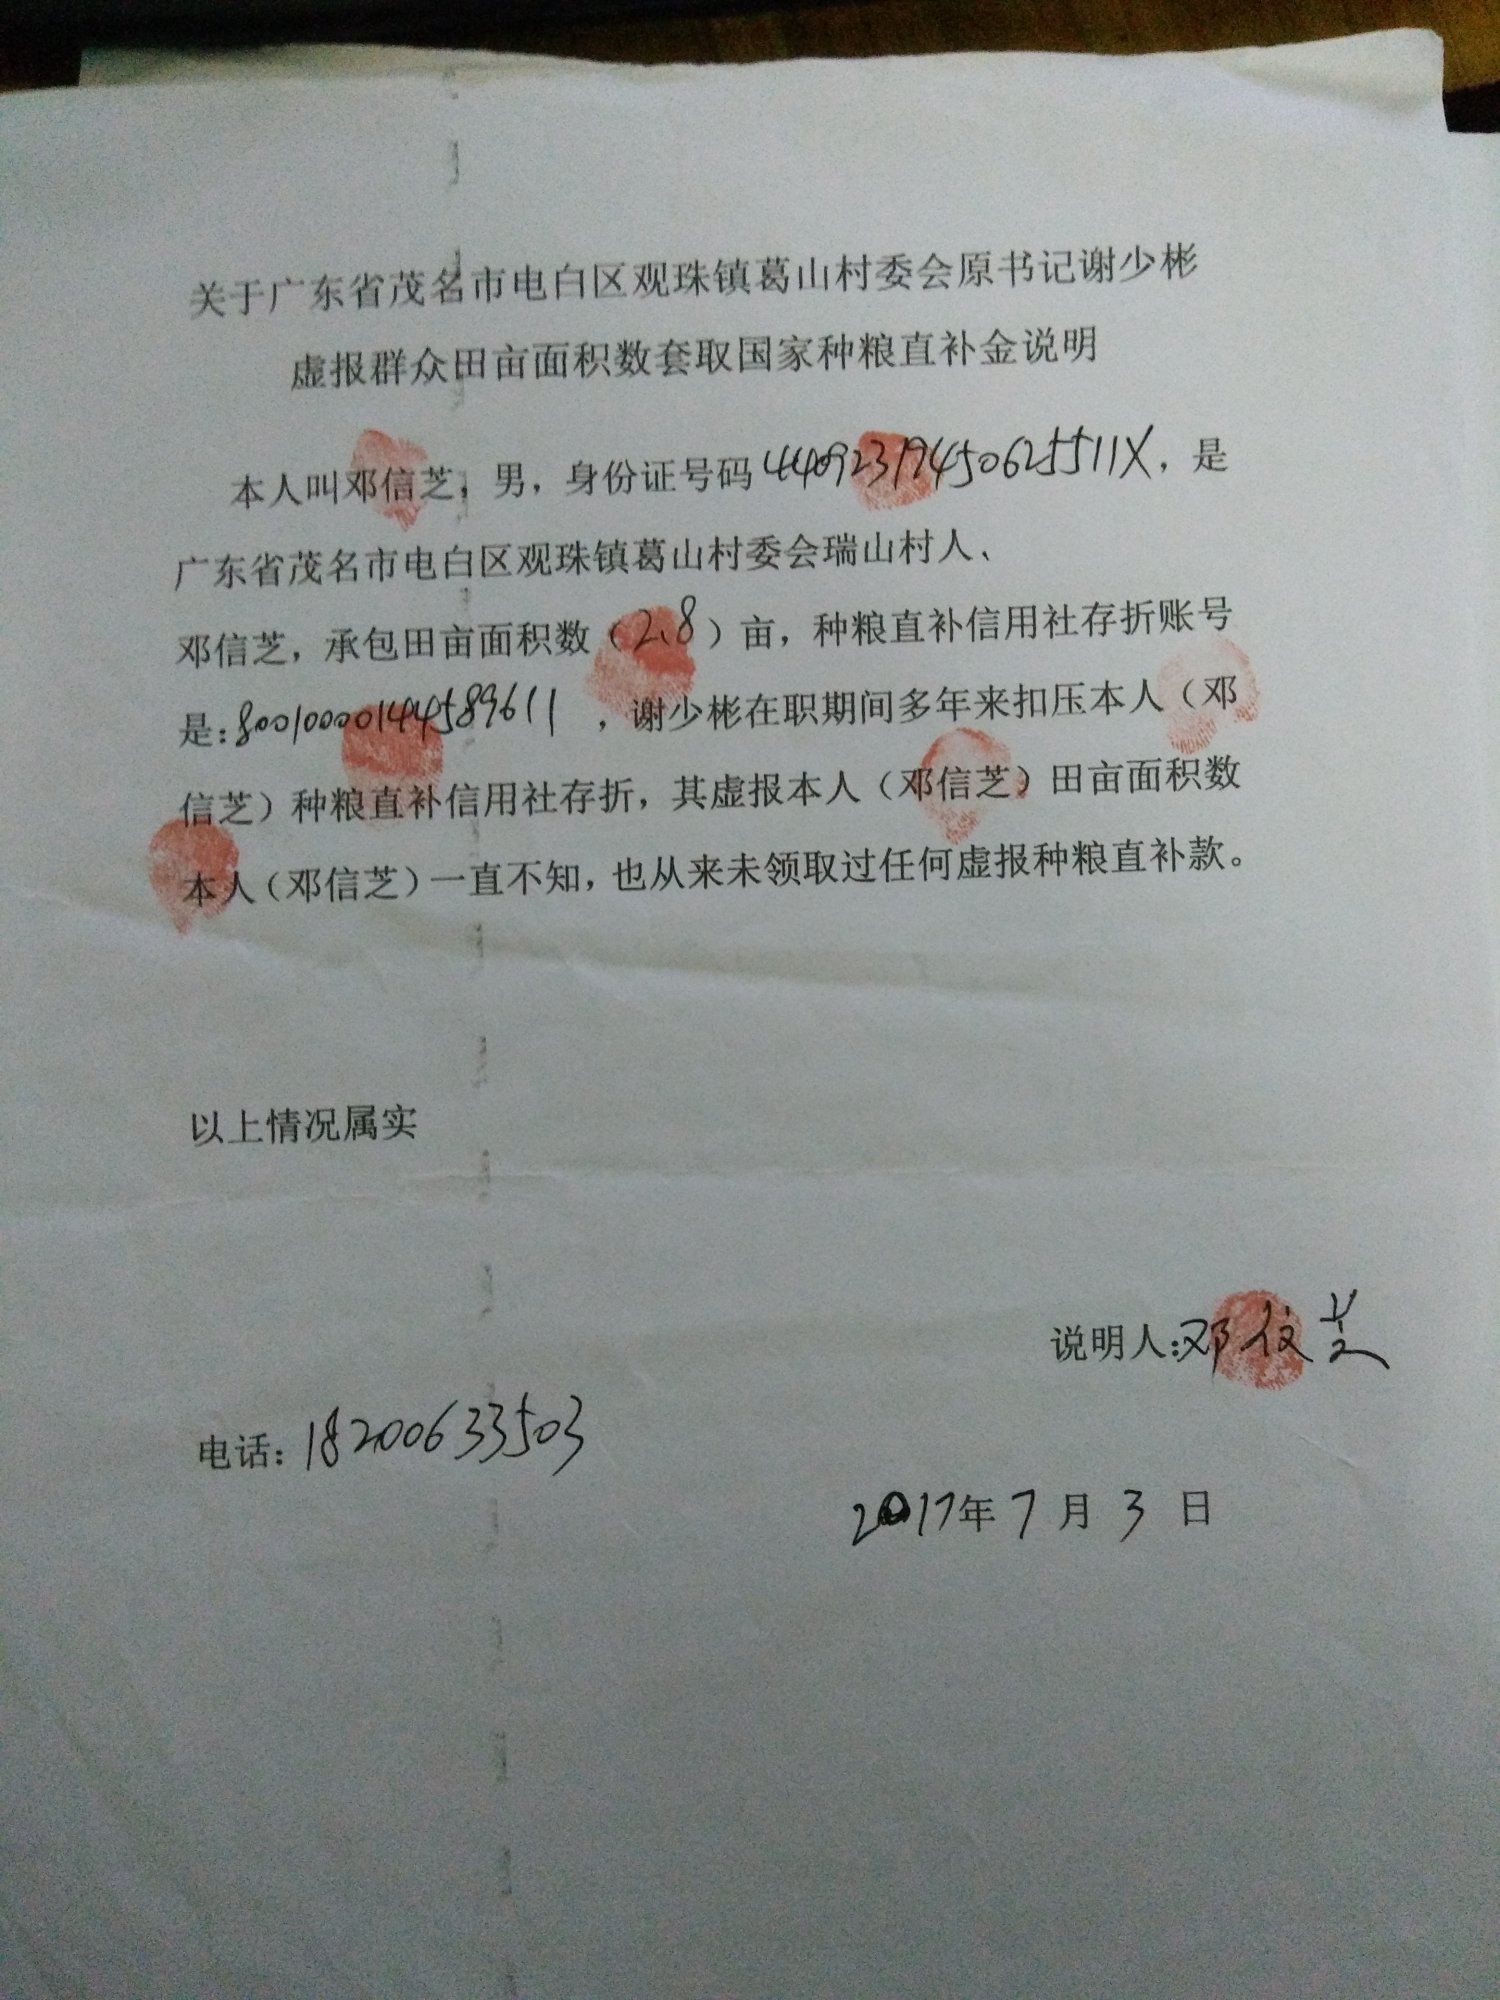 关于广东省茂名市电白区观珠镇葛山村委会原书记谢少彬
虚报群众田亩面积数套取国家种粮直补金说明
本人叫邓信芝，男，身份证号码44092319450625511X，是
广东省茂名市电白区观珠镇葛山村委会瑞山村人、
邓信芝，承包田亩面积数（2.8）亩，种粮直补信用社存折账号
是：80010000144589611，谢少彬在职期间多年来扣压本人（邓
信芝）种粮直补信用社存折，其虚报本人（邓信芝）田亩面积数
本人（邓信芝）一直不知，也从来未领取过任何虚报种粮直补款。
以上情况属实
说明人：邓信芝
电话：18200633503
2017年7月3日